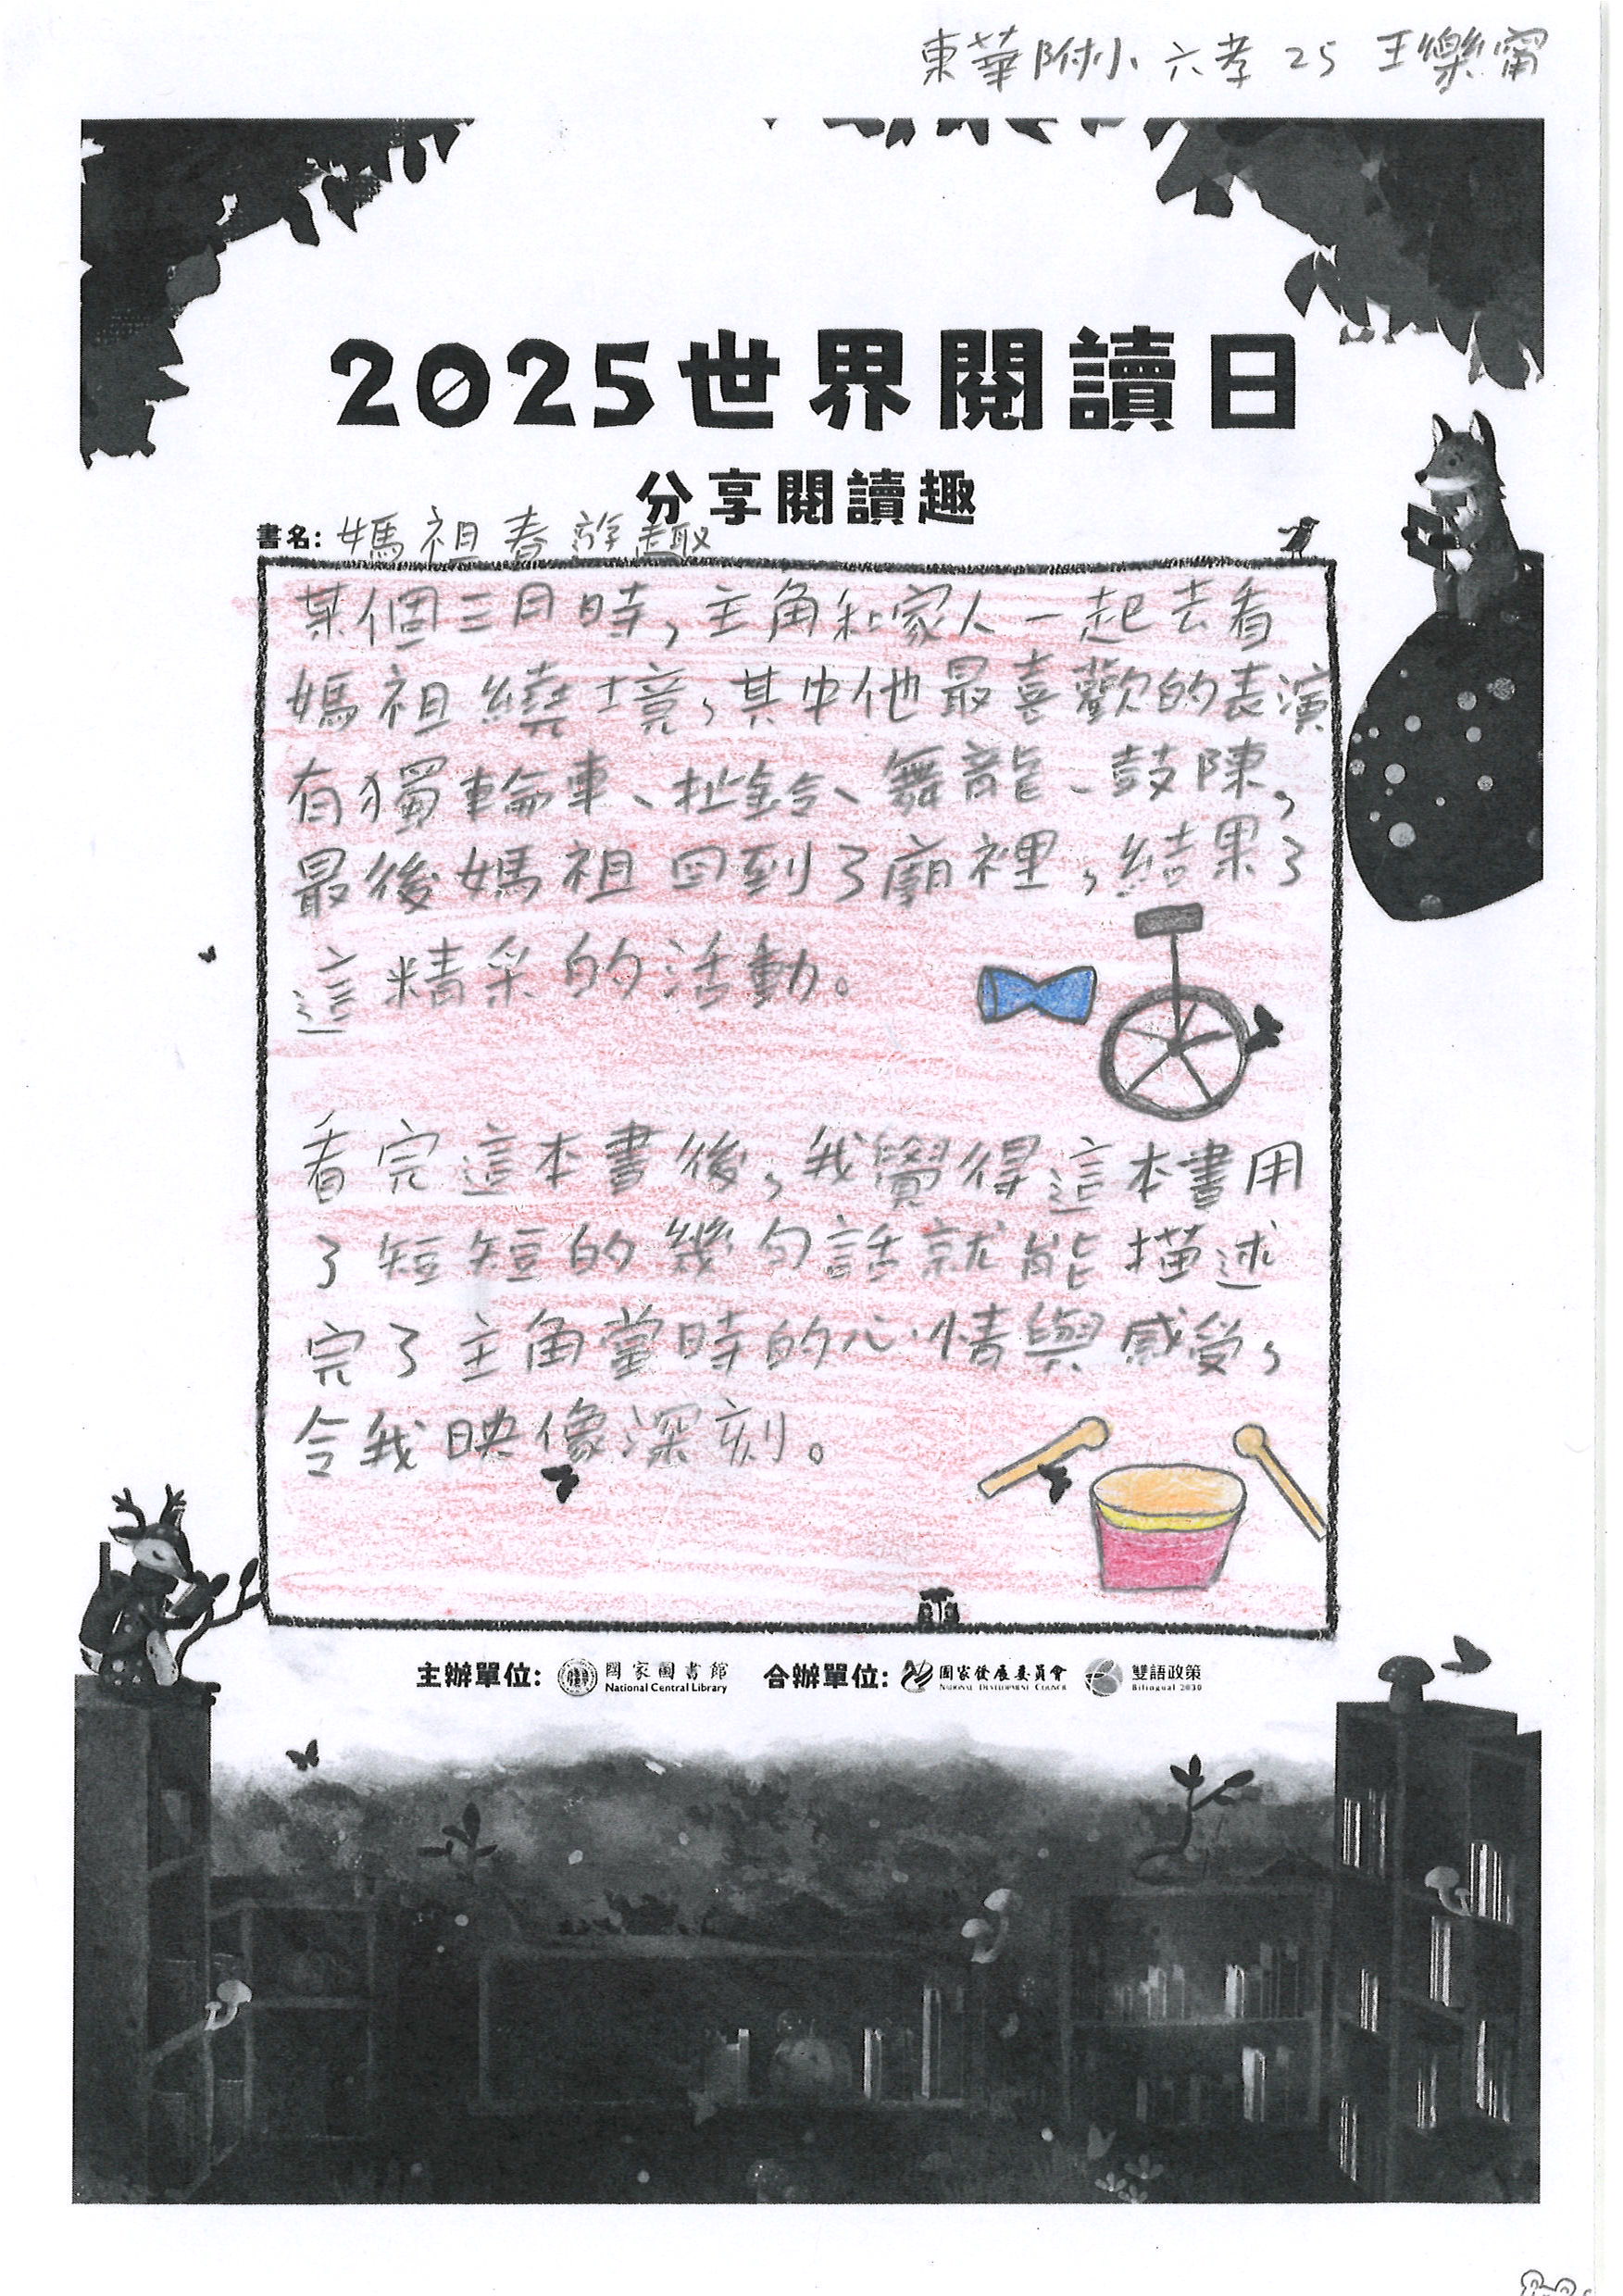 東華附小 六孝 25 王樂甯
2025世界閱讀日
分享閱讀趣
書名: 媽祖春遊趣
某個三月時,主角和家人一起去看
媽祖繞境,其中他最喜歡的表演
有獨輪車、扯鈴、舞龍、鼓陣,
最後媽祖回到了廟裡,結果了
這精采的活動。
看完這本書後,我覺得這本書用
了短短的幾句話就能描述
完了主角當時的心情與感受,
令我映像深刻。
主辦單位: 國家圖書館 National Central Library 合辦單位: 國家發展委員會 NATIONAL DEVELOPMENT COUNCIL 雙語政策 Bilingual 2030